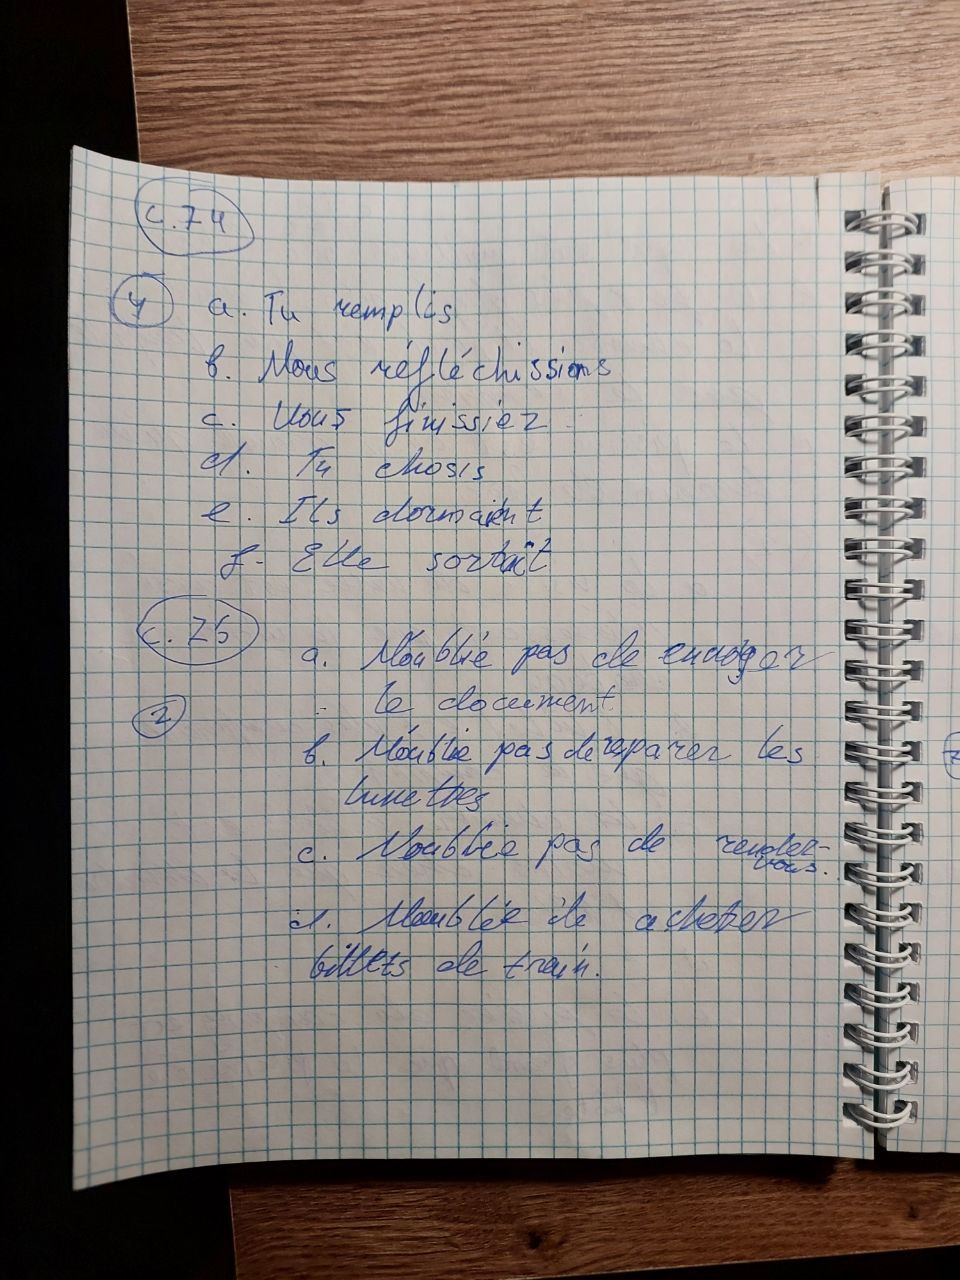 с. 74
4 a. Tu remplis
b. Nous réfléchissions
c. Vous finissiez
d. Tu chosis
e. Ils dormaient
f. Elle sortait
с. 75
a. N'oublie pas de envoyer
le document.
2
b. N'oublie pas de reparer les
lunettes
c. N'oublie pas de rendez-
vous.
d. N'oublie de acheter
billets de train.